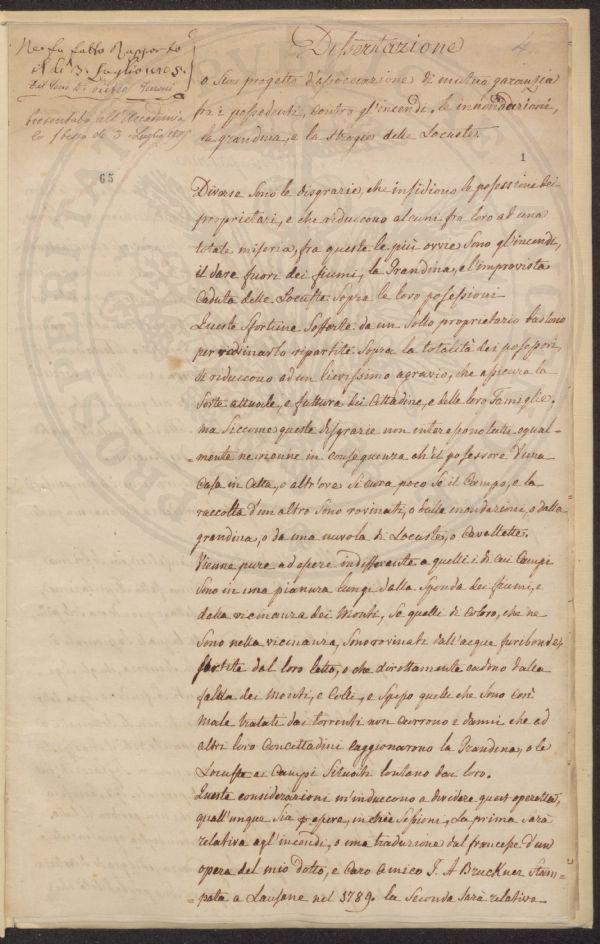 Ne fu fatto Rapporto
il dì 3. Luglio 1805.
presentata all'Accademia
lo stesso dì 3 Luglio 1805
4
1
65
Dissertazione
o sia progetto d'associazione di mutua garanzia
fra i possedenti, contro gl'incendi, le innondazioni,
la grandina, e la strage delle Locuste.
Diverse sono le disgrazie, che insidiono le possessione dei
proprietari, e che riduccono alcuni fra loro ad una
totale miseria, fra queste le più ovvie sono gl'incendi,
il dare fuori dei fiumi, la Grandina, e l'improvista
Caduta delle Locuste sopra le loro posessioni.
Queste sfortune sofferte da un solto proprietario bastono
per rovinarlo ripartite sopra la totalità dei posessori,
si riduccono ad un lievissimo agravio, che assicura la
sorte attuale, e futtura dei Cittadini, e delle loro Famiglie.
ma siccome queste disgrazie non interessono tutti egual-
-mente ne vienne in conseguenza ch'il possessore d'una
Casa in Città, o altr'ove si cura poco se il Campo, e la
raccolta d'un altro sono rovinati, o dalla inondazione, o dalla
grandina, o da una nuvola di Locuste, o Cavallette.
Vienne pure ad essere indifferente a quelli i di cui Campi
sono in una pianura lungi dalla sponda dei fiumi, e
dalla vicinanza dei Monti, se quelli di coloro, che ne
sono nella vicinanza, sono rovinati dall'acque furibonde,
sortite dal loro letto, o che dirottamente cadono dalla
falda dei monti, e Colli, e spesso quelli che sono così
male tratati dai torrenti non currono i danni che ad
altri loro Concittadini caggionarono la Grandina, o le
Locuste ai Campi situati lontano da loro.
Queste considerazioni m'induccono a dividere quest'operetta,
quall'unque sia essere, in Sessioni, La prima sarà
relativa agl'incendi, o una traduzione dal francese d'un
opera del mio dotto, e caro amico J. A Bruckner Stam-
pata a Lausane nel 1789. la seconda sarà relativa